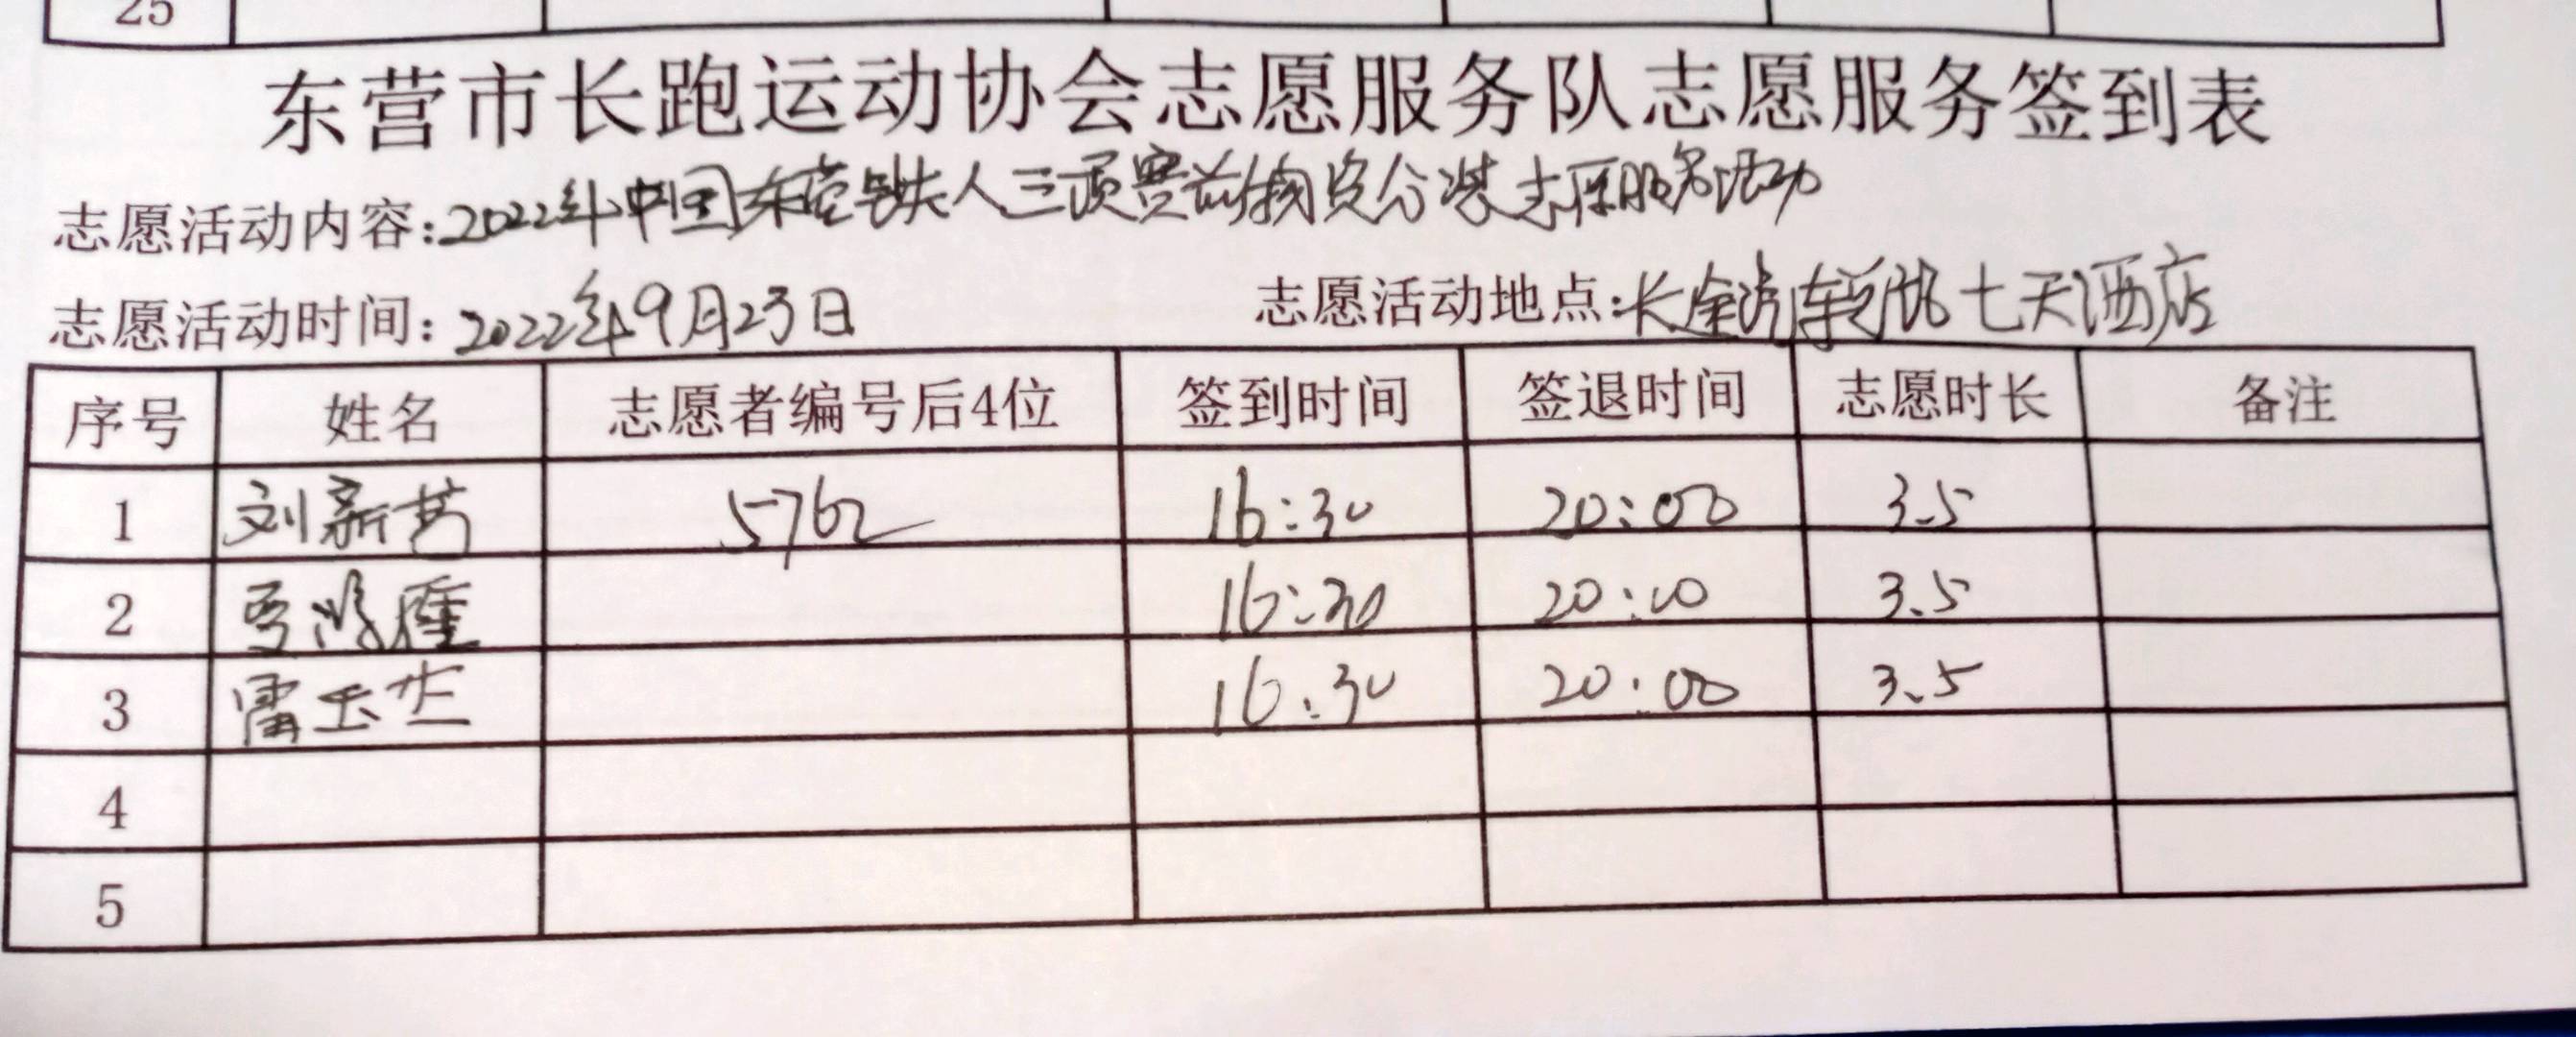 25
东营市长跑运动协会志愿服务队志愿服务签到表
志愿活动内容:2022年中国东营铁人三项赛前物资分装志愿服务活动
志愿活动时间:2022年9月23日 志愿活动地点:长途汽车站 七天酒店
序号 姓名 志愿者编号后4位 签到时间 签退时间 志愿时长 备注
1 刘新芳 5762 16:30 20:00 3.5
2 16:30 20:00 3.5
3 雷玉兰 16:30 20:00 3.5
4
5